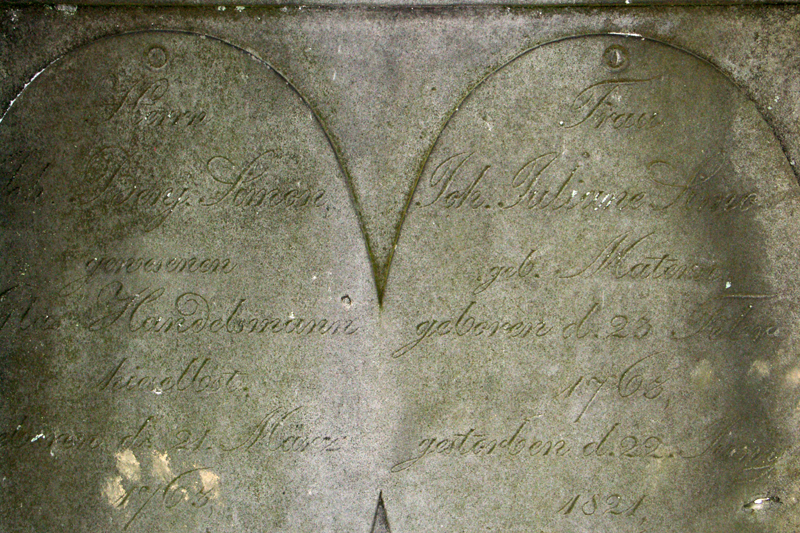 Herrn
Benj. Simon,
gewesenen
Handelsmann
hieselbst.
geboren d. 21. März
1763.
Frau
Joh. Juliane Simon
geb. Matern,
geboren d. 23
1763,
gestorben d. 22. Juny
1821,